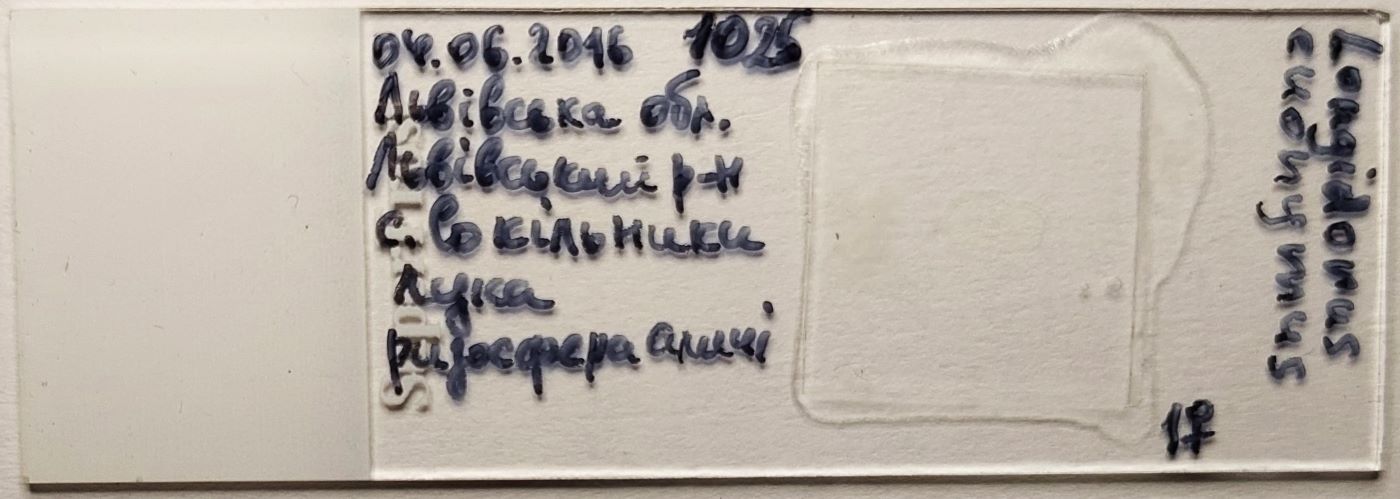 04.06.2016 1025
Львівська обл.
Львівський р-н
с. Сокільники
Лука
ризосфера аличі
Longidorus
euonymus
1♀